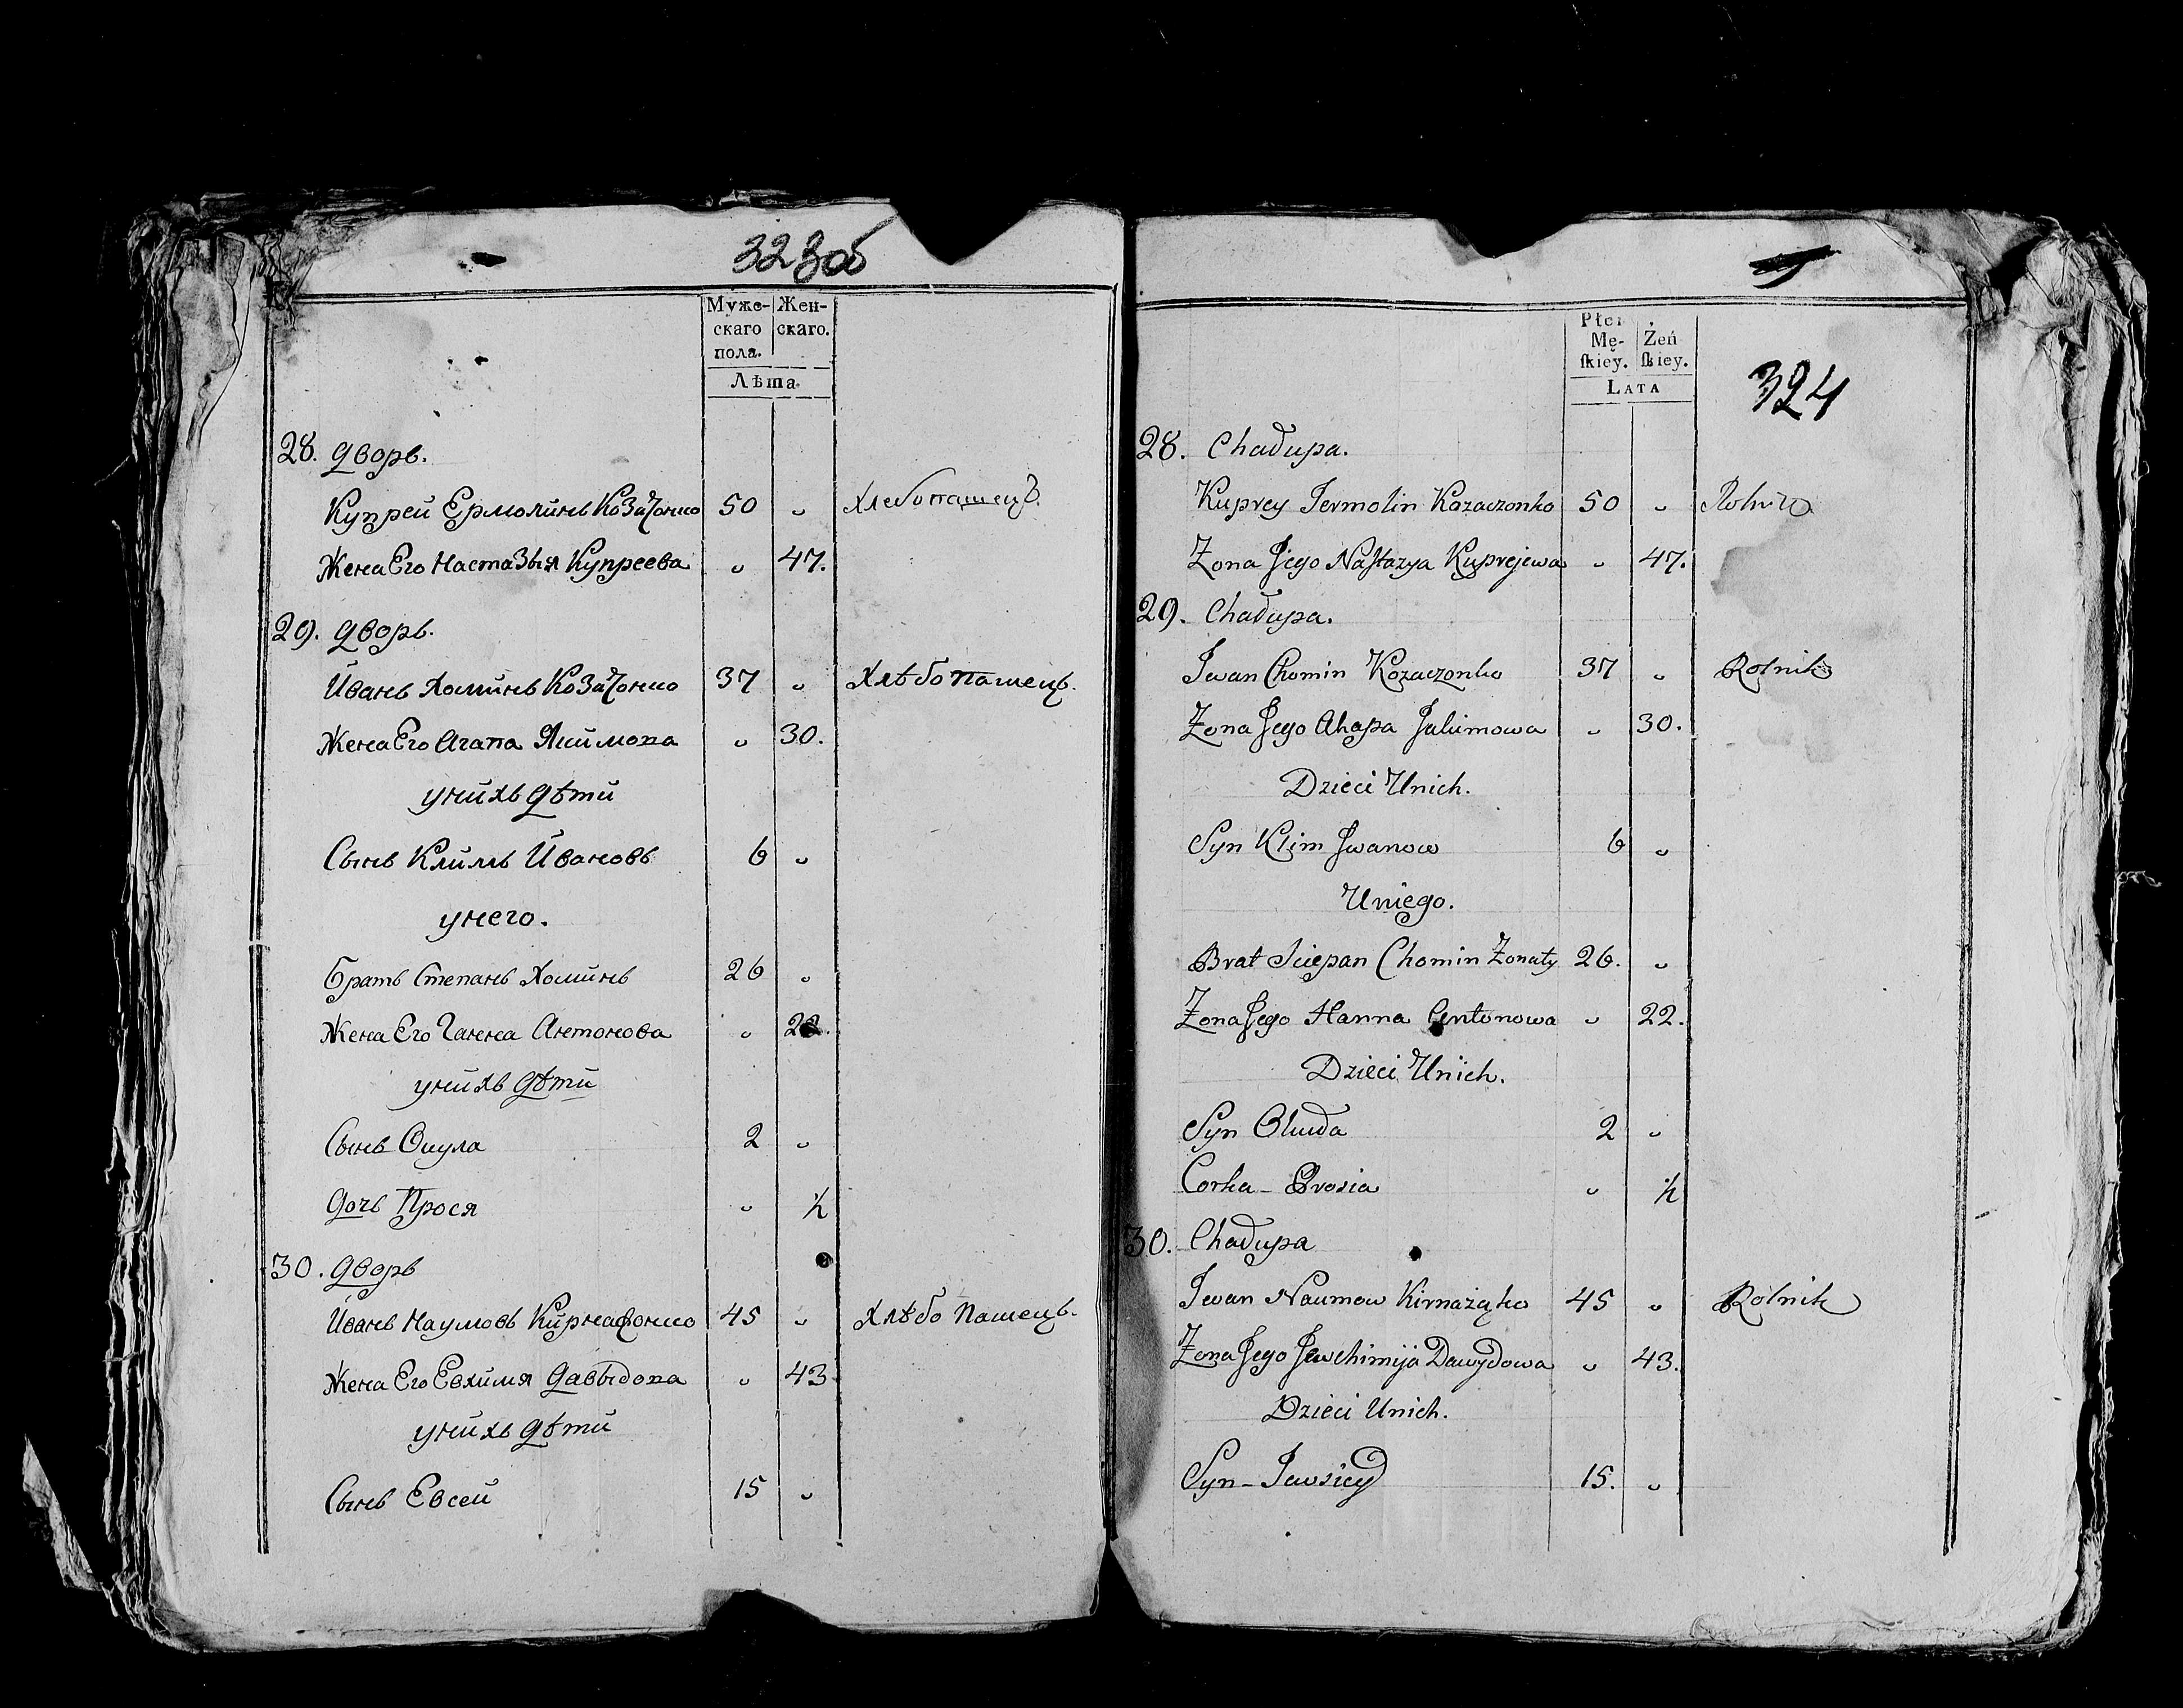 323об
Муже-
скаго
пола.
Жен-
скаго.
Лѣта.
28. дворъ.
Купрей Ермолинъ Козаченко 50 „ Хлебопашецъ.
Жена Его Настазыя Купреева „ 47.
29. дворъ.
Иванъ Хоминъ Козаченко 37 „ Хлѣбопашецъ.
Жена Его Агапа Якимова „ 30.
унихъ дѣти
Сынъ Климъ Ивановъ 6 „
унего.
братъ Степанъ Хоминъ 26 „
Жена Его Ганна Антонова „ 22.
унихъ дѣти
Сынъ Окула 2 „
дочь Прося „ ½
30. дворъ
Иванъ Наумовъ 45 „ Хлѣбо пашецъ.
Жена Его Евхимя давыдова „ 43
унихъ дѣти
Сынъ Евсей 15 „
324
Płci
Mę-
ſkiey.
Żeń
ſkiey.
LATA
28. Chałupa.
Kuprey Jermolin Kozaczonko 50 „ Rolnik
Zona Jego Naſtazya Kuprejewa „ 47.
29. Chałupa.
Jwan Chomin Kozaczonko 37 „ Rolnik
Zona Jego Ahapa Jakimowa „ 30.
Dzieci Unich.
Syn Klim Jwanow 6 „
Uniego.
Brat Sciepan Chomin Zonaty 26. „
Zona Jego Hanna Antonowa „ 22.
Dzieci Unich.
Syn Okuła 2 „
Corka - Prosia „ ½
30. Chałupa
Jwan Naumow Kirnażąko 45 „ Rolnik
Zona Jego Jewchimija Dawydowa „ 43.
Dzieci Unich.
Syn - Jewsiey 15. „